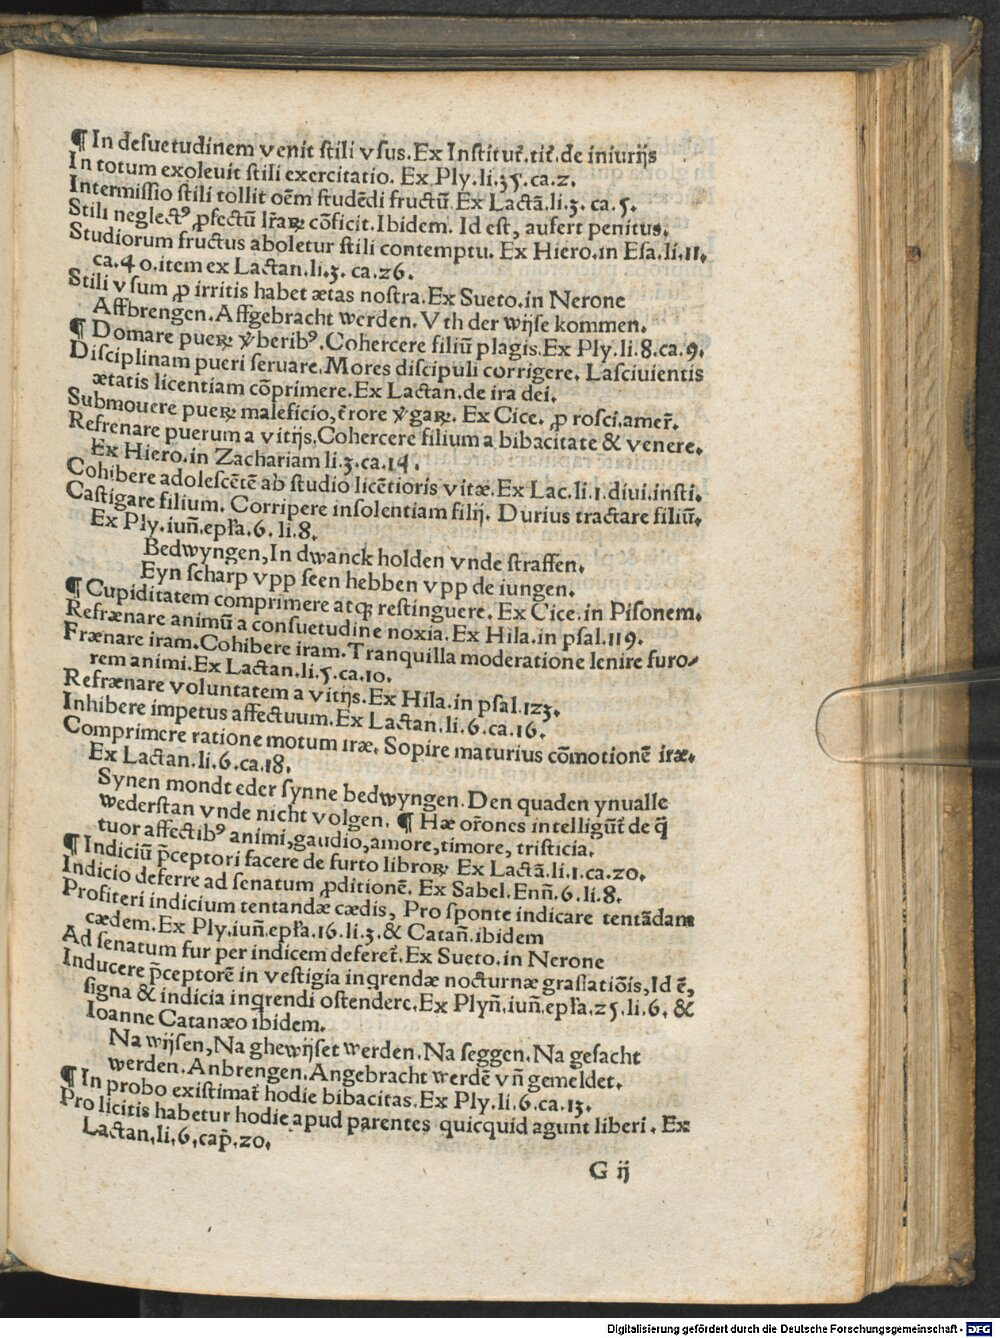 ¶ In desuetudinem venit stili vsus. Ex Institut̃. tit̃. de iniurijs
In totum exoleuit stili exercitatio. Ex Ply. li. 35. ca. 2.
Intermissio stili tollit oẽm studẽdi fructũ. Ex Lactã. li. 3. ca. 5.
Stili neglectꝰ ꝓfectũ lr̃aꝝ cõficit. Ibidem. Id est, aufert penitus.
Studiorum fructus aboletur stili contemptu. Ex Hiero. in Esa. li. 11.
ca. 40. item ex Lactan. li. 3. ca. 26.
Stili vsum ꝓ irritis habet ætas nostra. Ex Sueto. in Nerone
Affbrengen. Affgebracht werden. Vth der wijse kommen.
¶ Domare pueꝝ v̾beribꝰ. Cohercere filiũ plagis. Ex Ply. li. 8. ca. 9.
Disciplinam pueri seruare. Mores discipuli corrigere. Lasciuientis
ætatis licentiam cõprimere. Ex Lactan. de ira dei.
Submouere pueꝝ maleficio, ẽrore v̾gaꝝ. Ex Cice. ꝓ rosci. amer̃.
Refrenare puerum a vitijs. Cohercere filium a bibacitate & venere.
Ex Hiero. in Zachariam li. 3. ca. 14.
Cohibere adolescẽtẽ ab studio licẽtioris vitæ. Ex Lac. li. 1. diui. insti.
Castigare filium. Corripere insolentiam filij. Durius tractare filiũ.
Ex Ply. iuñ. epl̃a. 6. li. 8.
Bedwyngen, In dwanck holden vnde straffen.
Eyn scharp vpp seen hebben vpp de iungen.
¶ Cupiditatem comprimere atqꝫ restinguere. Ex Cice. in Pisonem.
Refrænare animũ a consuetudine noxia. Ex Hila. in psal. 119.
Frænare iram. Cohibere iram. Tranquilla moderatione lenire furo⸗
rem animi. Ex Lactan. li. 5. ca. 10.
Refrænare voluntatem a vitijs. Ex Hila. in psal. 123.
Inhibere impetus affectuum. Ex Lactan. li. 6. ca. 16.
Comprimere ratione motum iræ. Sopire maturius cõmotionẽ iræ.
Ex Lactan. li. 6. ca. 18.
Synen mondt eder synne bedwyngen. Den quaden ynualle
wederstan vnde nicht volgen. ¶ Hæ or̃ones intelligũt̃ de q̃
tuor affectibꝰ animi, gaudio, amore, timore, tristicia.
¶ Indiciũ p̃ceptori facere de furto libroꝝ. Ex Lactã. li. 1. ca. 20.
Indicio deferre ad senatum ꝓditionẽ. Ex Sabel. Enñ. 6. li. 8.
Profiteri indicium tentandæ cædis, Pro sponte indicare tentãdam
cædem. Ex Ply. iuñ. epl̃a. 16. li. 3. & Catañ. ibidem
Ad senatum fur per indicem deferet̃. Ex Sueto. in Nerone
Inducere p̃ceptorẽ in vestigia inqrendæ nocturnæ grassatiõis, Id ẽ,
signa & indicia inqrendi ostendere. Ex Plyñ. iuñ. epl̃a. 25. li. 6. &
Ioanne Catanæo ibidem.
Na wijsen, Na ghewijset werden. Na seggen. Na gesacht
werden. Anbrengen. Angebracht werdẽ vñ gemeldet.
¶ In probo existimat̃ hodie bibacitas. Ex Ply. li. 6. ca. 13.
Pro licitis habetur hodie apud parentes quicquid agunt liberi. Ex
Lactan. li. 6. cap̃. 20.
G ij
Digitalisierung gefördert durch die Deutsche Forschungsgemeinschaft - DFG